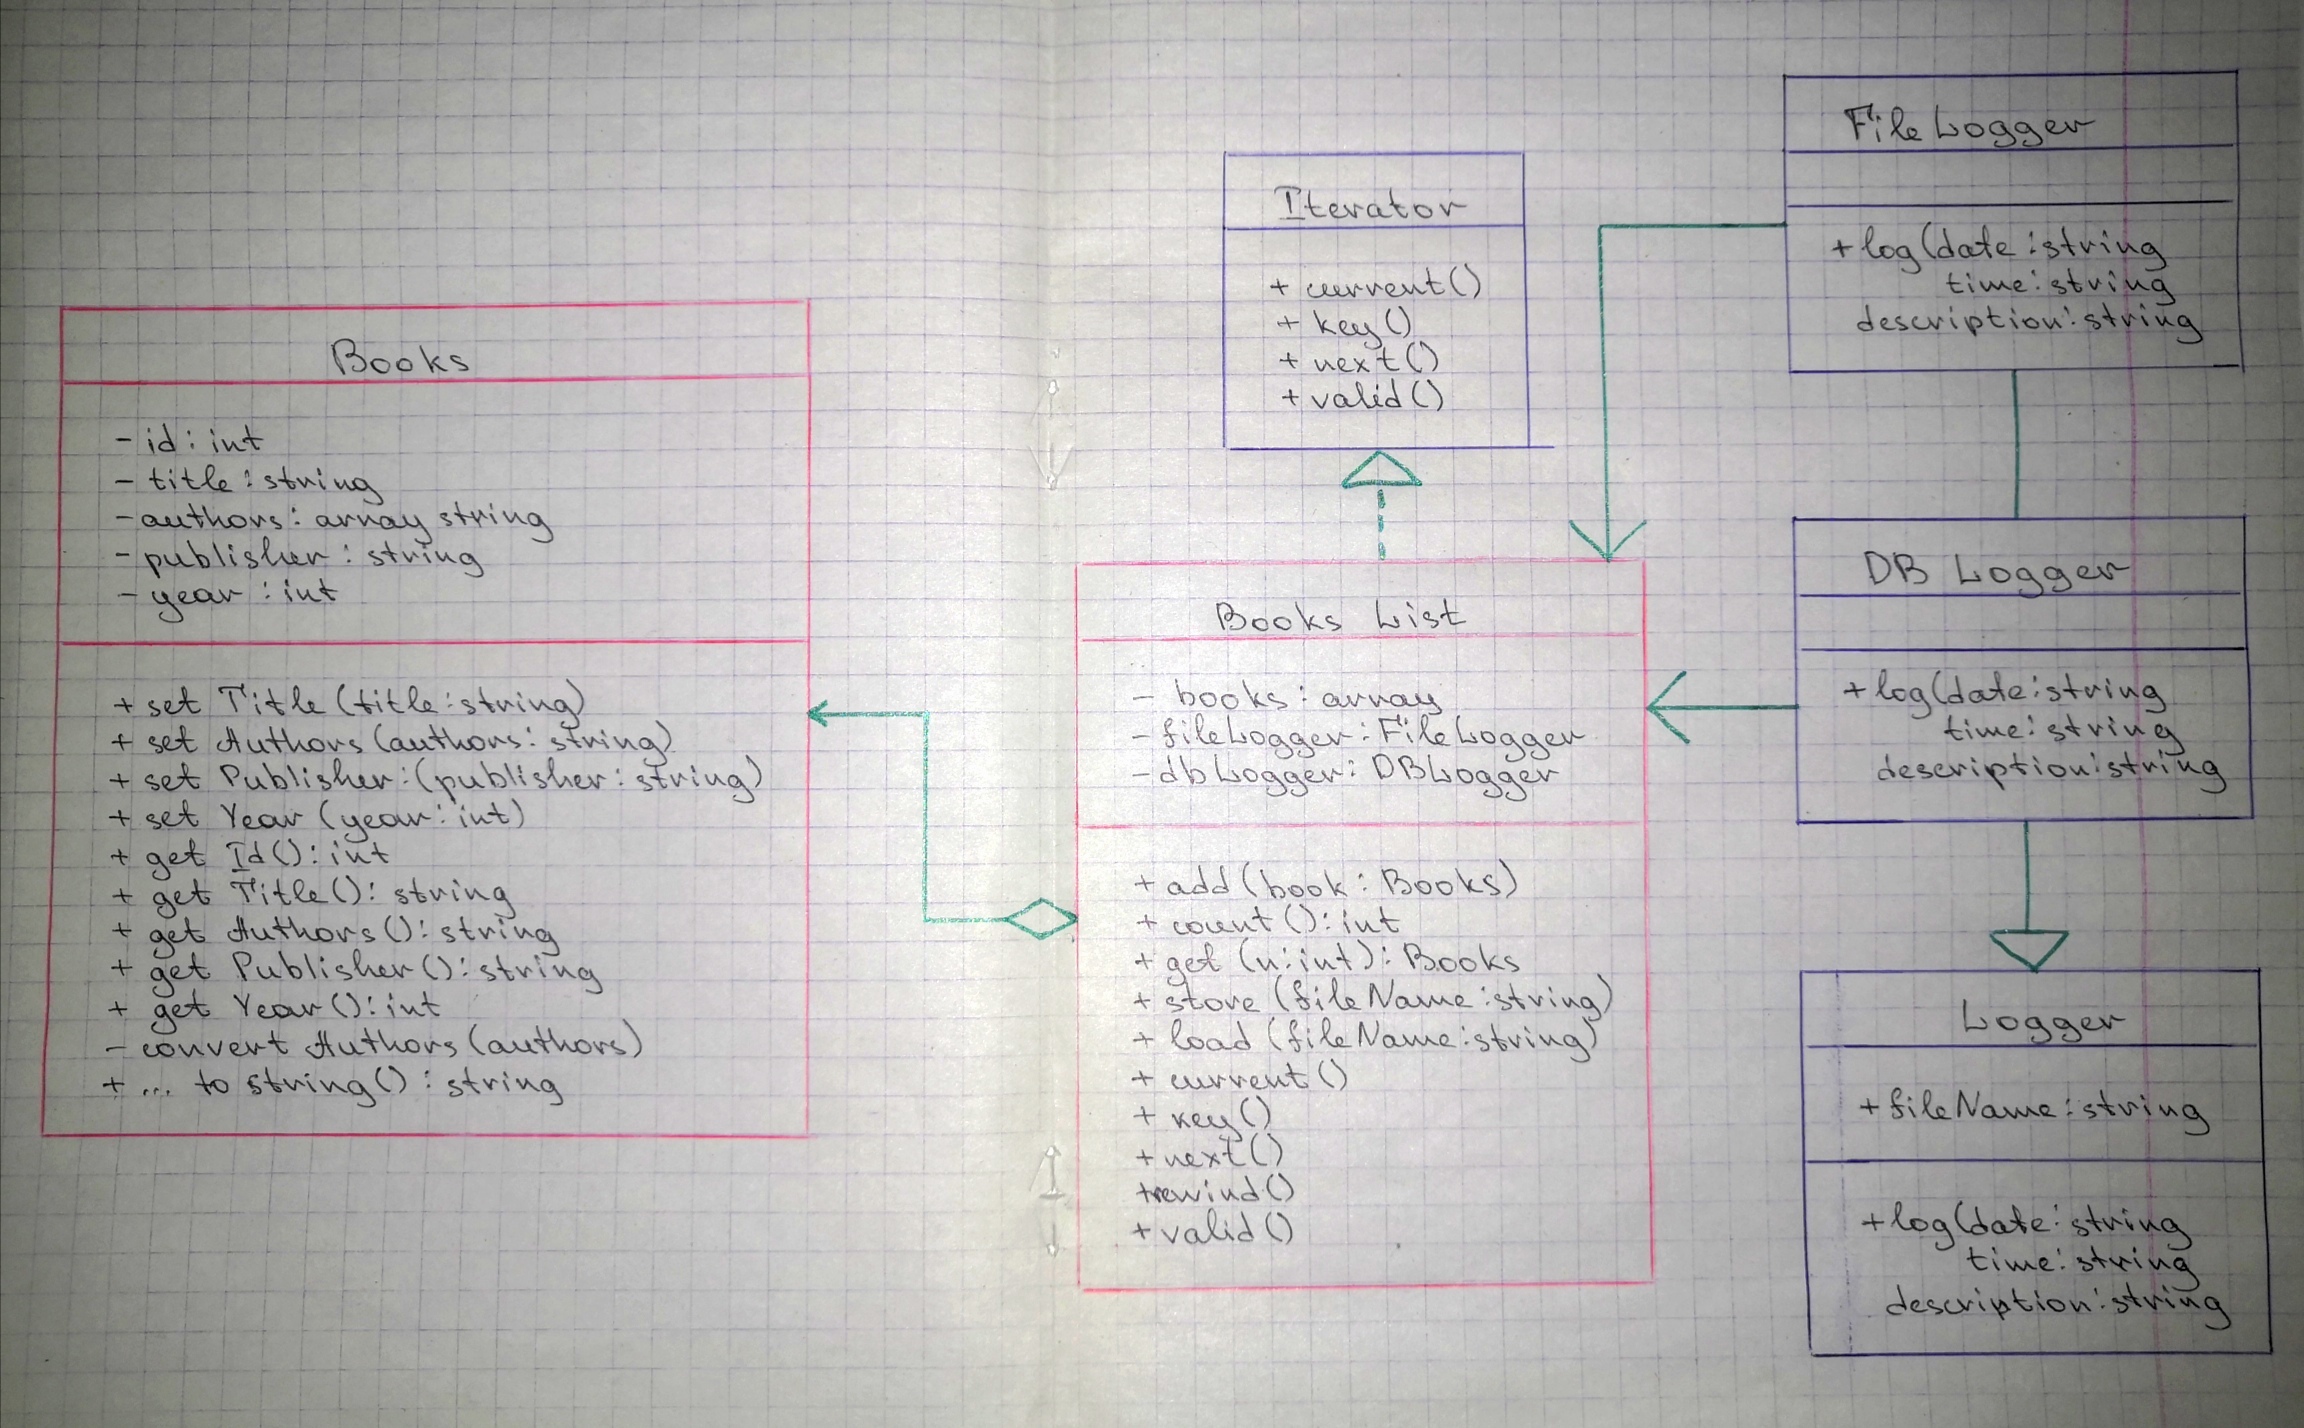 Books
- id : int
- title : string
- authors : array string
- publisher : string
- year : int
+ set Title (title : string)
+ set Authors (authors : string)
+ set Publisher : (publisher : string)
+ set Year (year : int)
+ get Id() : int
+ get Title() : string
+ get Authors() : string
+ get Publisher() : string
+ get Year() : int
- convert Authors (authors)
+ ... to string() : string
Iterator
+ current()
+ key()
+ next()
+ valid()
Books List
- books : array
- fileLogger : FileLogger
- dbLogger : DBLogger
+ add (book : Books)
+ count() : int
+ get (n : int) : Books
+ store (fileName : string)
+ load (fileName : string)
+ current()
+ key()
+ next()
+ rewind()
+ valid()
File Logger
+ log(date : string
time : string
description : string
DB Logger
+ log(date : string
time : string
description : string
Logger
+ fileName : string
+ log(date : string
time : string
description : string